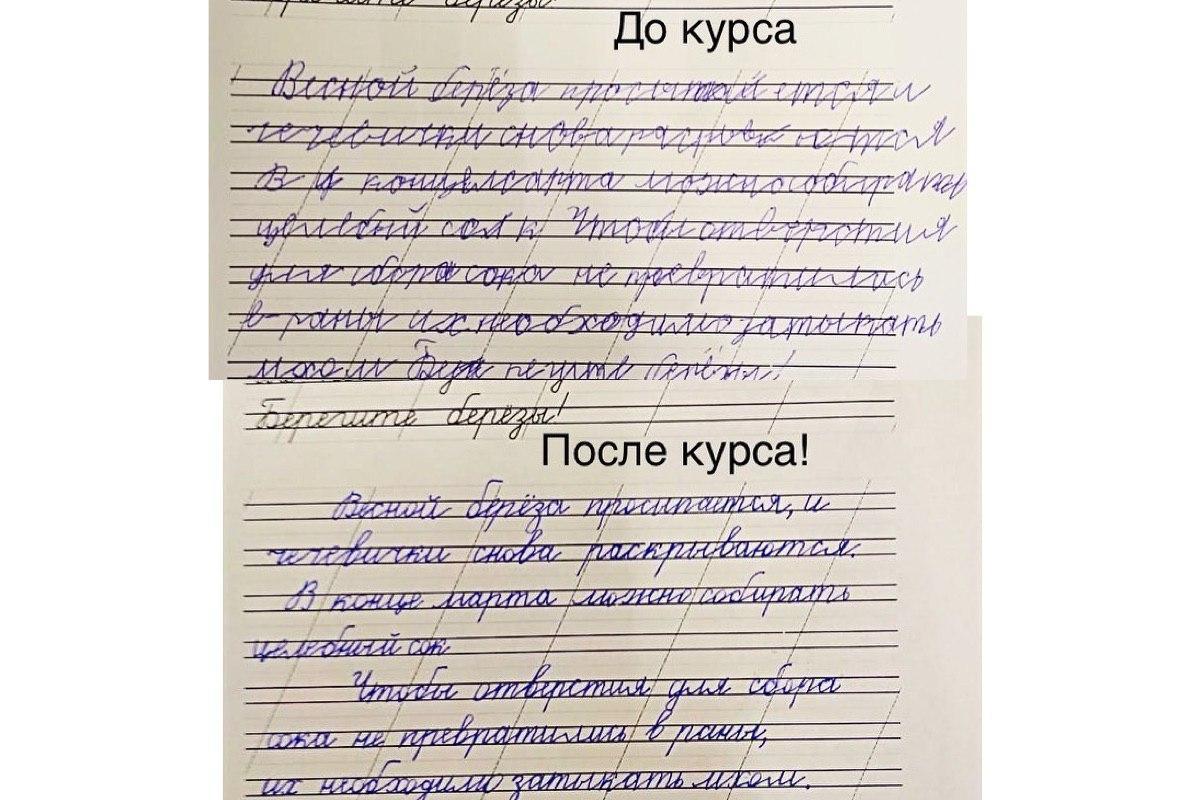 берёзы
До курса
Весной берёза просыпается и
чечевички снова
В конце марта можно собирать
сок Чтобы отверстия
для сбора сока не превратились
в раны их необходимо затыкать
мхом
Берегите берёзы!
После курса!
Весной берёза просыпается, и
чечевички снова раскрываются.
В конце марта можно собирать
целебный сок
Чтобы отверстия для сбора
сока не превратились в раны,
их необходимо затыкать мхом.